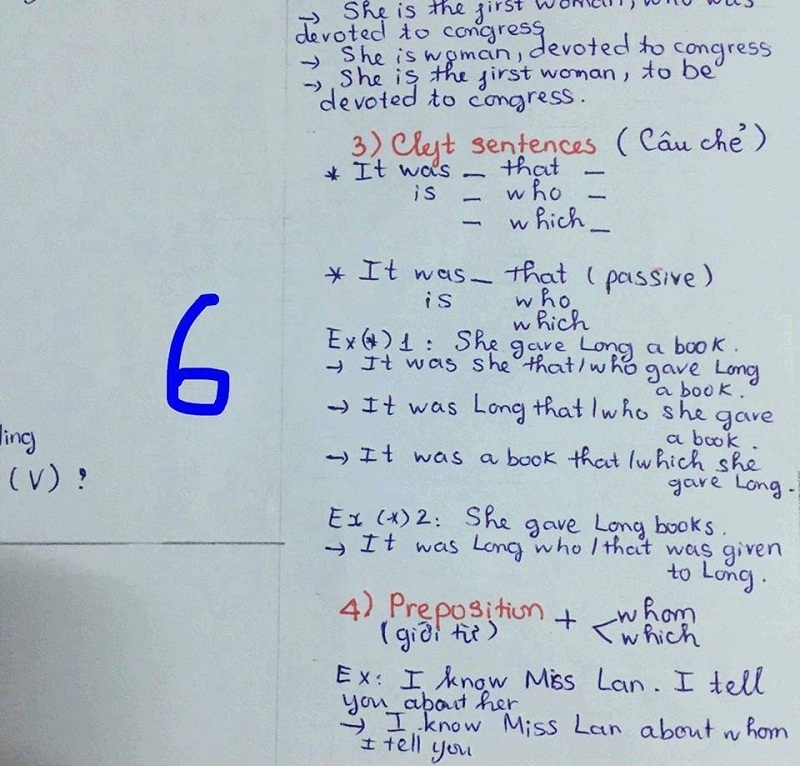 → She is the first woman, who was
devoted to congress
→ She is woman, devoted to congress
→ She is the first woman, to be
devoted to congress.
3) Cleft sentences (Câu chẻ)
* It was _ that _
is _ who _
_ which _
* It was _ that (passive)
is who
which
Ex(*)1: She gave Long a book.
→ It was she that/who gave Long
a book.
→ It was Long that/who she gave
a book.
→ It was a book that/which she
gave Long.
Ex (*)2: She gave Long books.
→ It was Long who/that was given
to Long.
4) Preposition + < whom
(giới từ) which
Ex: I know Miss Lan. I tell
you about her
→ I know Miss Lan about whom
I tell you
6
(V) ?